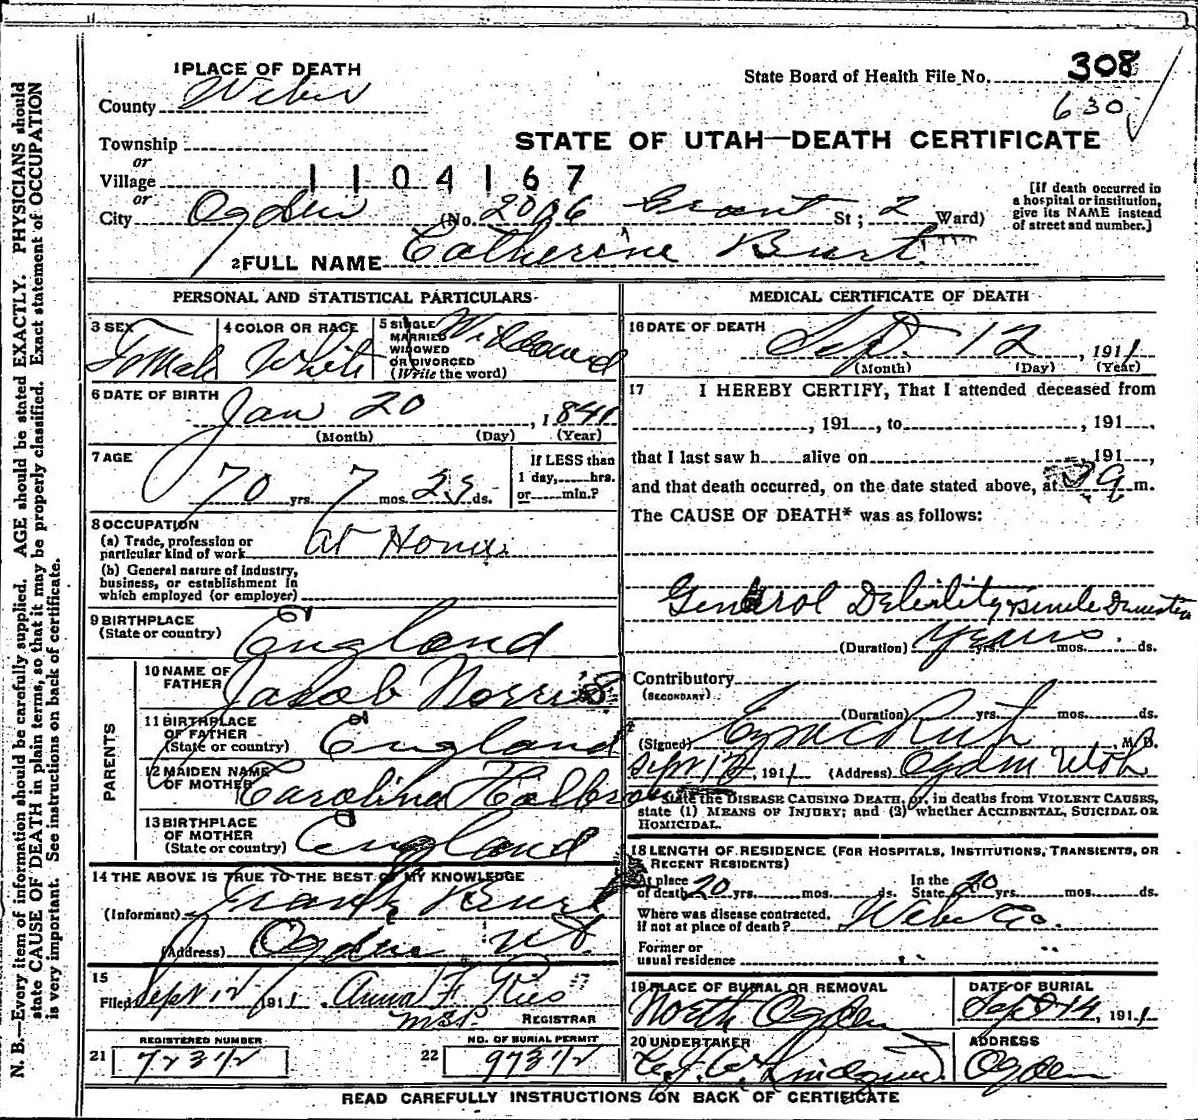 1 PLACE OF DEATH
County Weber
State Board of Health File No. 308
630
Township
or
Village
or
1104167
STATE OF UTAH—DEATH CERTIFICATE
City Ogden (No. 2006 Grant St; 2 Ward)
[If death occurred in
a hospital or institution,
give its NAME instead
of street and number.]
2 FULL NAME Catherine Burt
PERSONAL AND STATISTICAL PARTICULARS
3 SEX Female
4 COLOR OR RACE White
5 SINGLE
MARRIED
WIDOWED
OR DIVORCED
(Write the word)
Widowed
6 DATE OF BIRTH
Jan 20, 1841
(Month) (Day) (Year)
7 AGE
70 yrs. 7 mos. ds.
If LESS than
1 day, hrs.
or min.?
8 OCCUPATION
(a) Trade, profession or
particular kind of work At Home
(b) General nature of industry,
business, or establishment in
which employed (or employer)
9 BIRTHPLACE
(State or country) England
PARENTS
10 NAME OF
FATHER Jacob Norris
11 BIRTHPLACE
OF FATHER
(State or country) England
12 MAIDEN NAME
OF MOTHER Carolina
13 BIRTHPLACE
OF MOTHER
(State or country) England
14 THE ABOVE IS TRUE TO THE BEST OF MY KNOWLEDGE
(Informant) Frank Burt
(Address) Ogden Ut.
15
Filed Sept 12 1911. Anna F.
REGISTRAR
REGISTERED NUMBER
21
NO. OF BURIAL PERMIT
22
MEDICAL CERTIFICATE OF DEATH
16 DATE OF DEATH
Sept. 12, 1911
(Month) (Day) (Year)
17 I HEREBY CERTIFY, That I attended deceased from
, 191 , to , 191 .
that I last saw h alive on 191 ,
and that death occurred, on the date stated above, at m.
The CAUSE OF DEATH* was as follows:
General Debility Senile Dementia
(Duration) Years. yrs. mos. ds.
Contributory
(SECONDARY)
(Duration) yrs. mos. ds.
(Signed) M. D.
Sept , 1911 (Address) Ogden Utah
* State the DISEASE CAUSING DEATH, or, in deaths from VIOLENT CAUSES,
state (1) MEANS OF INJURY; and (2) whether ACCIDENTAL, SUICIDAL OR
HOMICIDAL.
18 LENGTH OF RESIDENCE (FOR HOSPITALS, INSTITUTIONS, TRANSIENTS, OR
RECENT RESIDENTS)
At place
of death 20 yrs. mos. ds.
In the
State 20 yrs. mos. ds.
Where was disease contracted,
if not at place of death? Weber Co.
Former or
usual residence
19 PLACE OF BURIAL OR REMOVAL
North Ogden
DATE OF BURIAL
Sept 14, 1911
20 UNDERTAKER
Lindquist
ADDRESS
Ogden
READ CAREFULLY INSTRUCTIONS ON BACK OF CERTIFICATE
N. B.—Every item of information should be carefully supplied. AGE should be stated EXACTLY. PHYSICIANS should
state CAUSE OF DEATH in plain terms, so that it may be properly classified. Exact statement of OCCUPATION
is very important. See instructions on back of certificate.